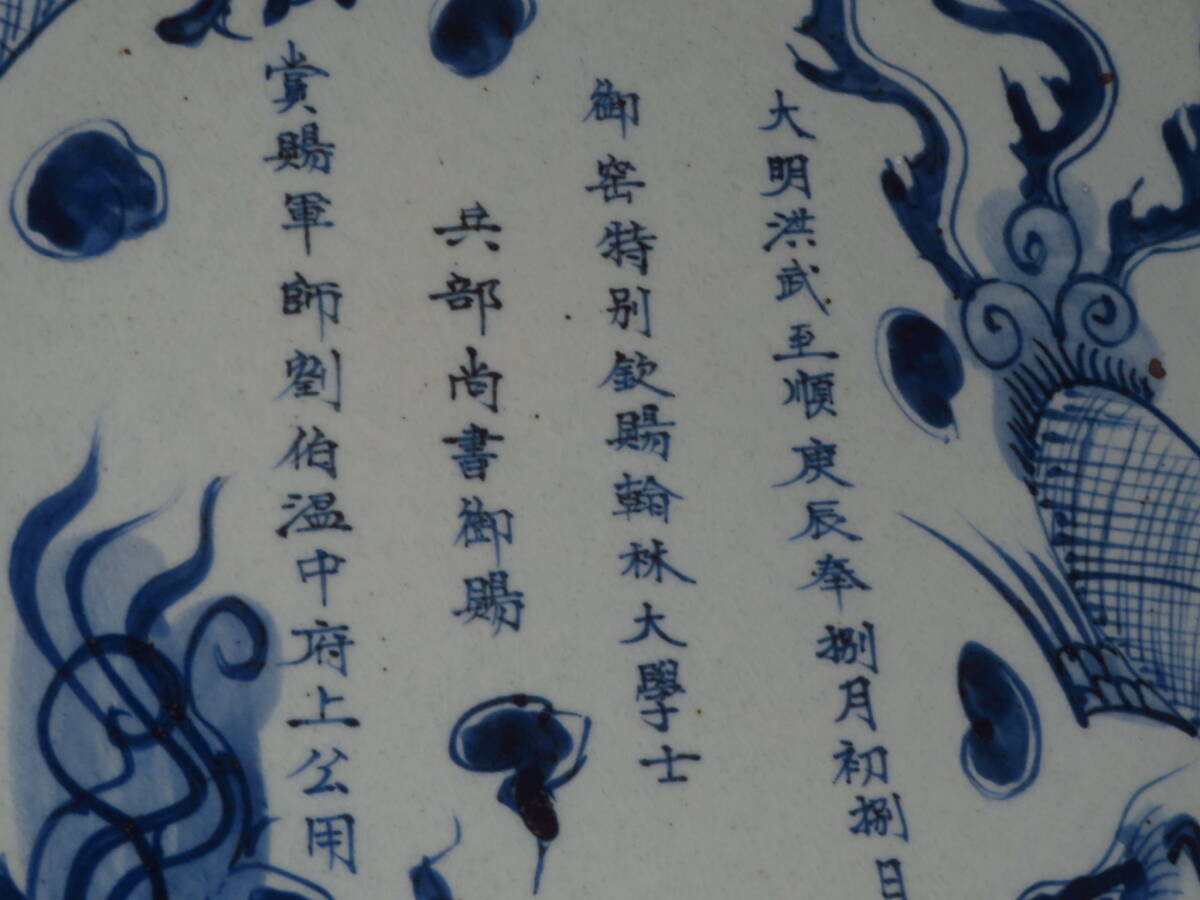 大明洪武至順庚辰奉捌月初捌日
御窑特别欽賜翰林大學士
兵部尚書御賜
賞賜軍師劉伯温中府上公用